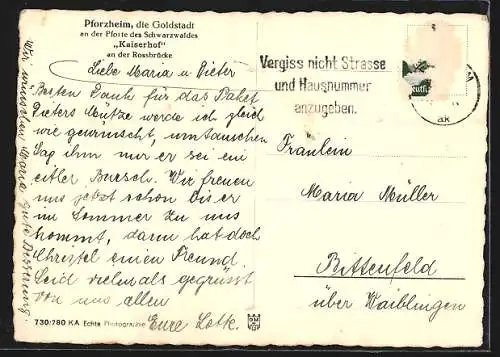 Pforzheim, die Goldstadt
an der Pforte des Schwarzwaldes
„Kaiserhof"
an der Rossbrücke
Liebe Maria u Pieter
Besten Dank für das Paket
Pieters Mütze werde ich gleich
wie gewünscht, umtauschen
Sag ihm nur er sei ein
eitler Bursch. Wir freuen
uns jetzt schon bis er
im Sommer zu uns
kommt, dann hat doch
Christel einen Freund.
Seid vielmals gegrüsst
von uns allen
Eure Lotte.
Wir wünschen Maria gute Besserung.
730/780 KA Echte Photographie
Vergiss nicht Strasse
und Hausnummer
anzugeben.
ak
Fräulein
Maria Müller
Bittenfeld
über Waiblingen